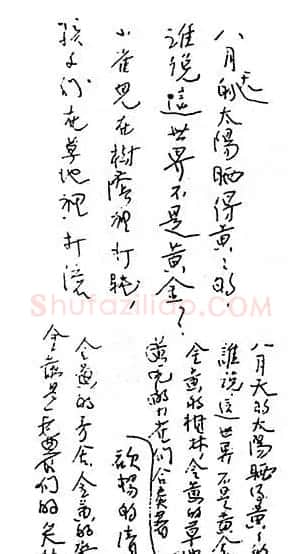 八月天的太陽晒得黃黃的,
誰說這世界不是黃金?
小雀兒在樹蔭裡打盹,
孩子们在草地裡打滾
Shufaziliao.com
八月天的太陽晒得黃黃的
誰說這世界不是黃金
金黃的樹林,金黃的草地
们合奏著
歡暢的清
金黃的茅舍,金黃的
金黃是老農们的笑